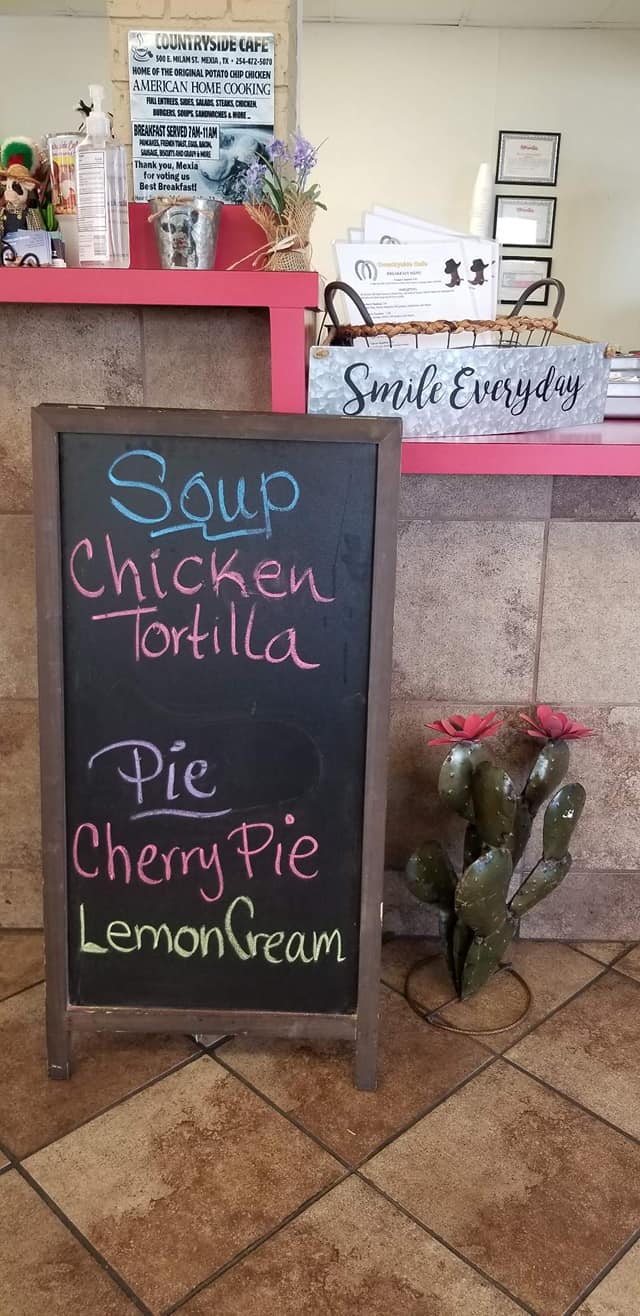 COUNTRYSIDE CAFE
500 E. MILAM ST. MEXIA, TX • 254-472-5070
HOME OF THE ORIGINAL POTATO CHIP CHICKEN
AMERICAN HOME COOKING
FULL ENTREES, SIDES, SALADS, STEAKS, CHICKEN,
BURGERS, SOUPS, SANDWICHES & MORE...
BREAKFAST SERVED 7AM-11AM
PANCAKES, FRENCH TOAST, EGGS, BACON,
SAUSAGE, BISCUITS AND GRAVY & MORE
Thank you, Mexia
for voting us
Best Breakfast!
Countryside Cafe
BREAKFAST MENU
Smile Everyday
Soup
Chicken
Tortilla
Pie
Cherry Pie
Lemon Cream